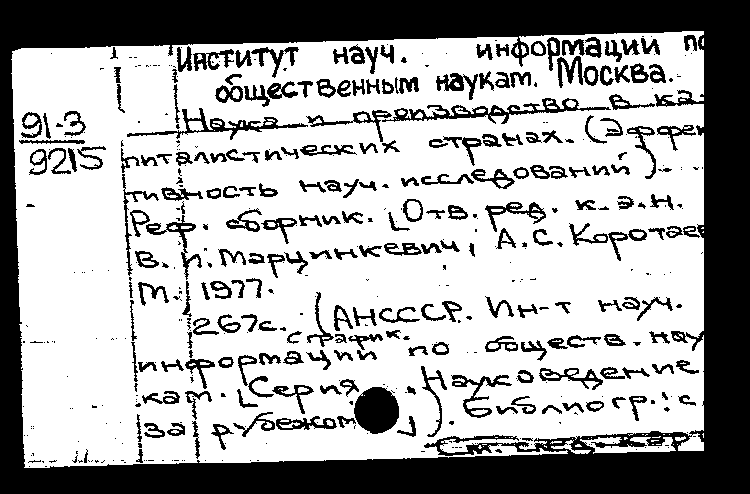 Институт науч. информации по
общественным наукам. Москва.
91-3
9215
Наука и производство в ка-
питалистических странах. (Эффек
тивность науч. исследований).
Реф. сборник. [Отв. ред. к.э.н.
В. И. Марцинкевич, А.С. Коротаев
М. 1977.
267с. (АНСССР. Ин-т науч.
с график.
информации по обществ. нау
кам. [Серия. Науковедение
за рубежом]). Библиогр.: с
См. след. карт